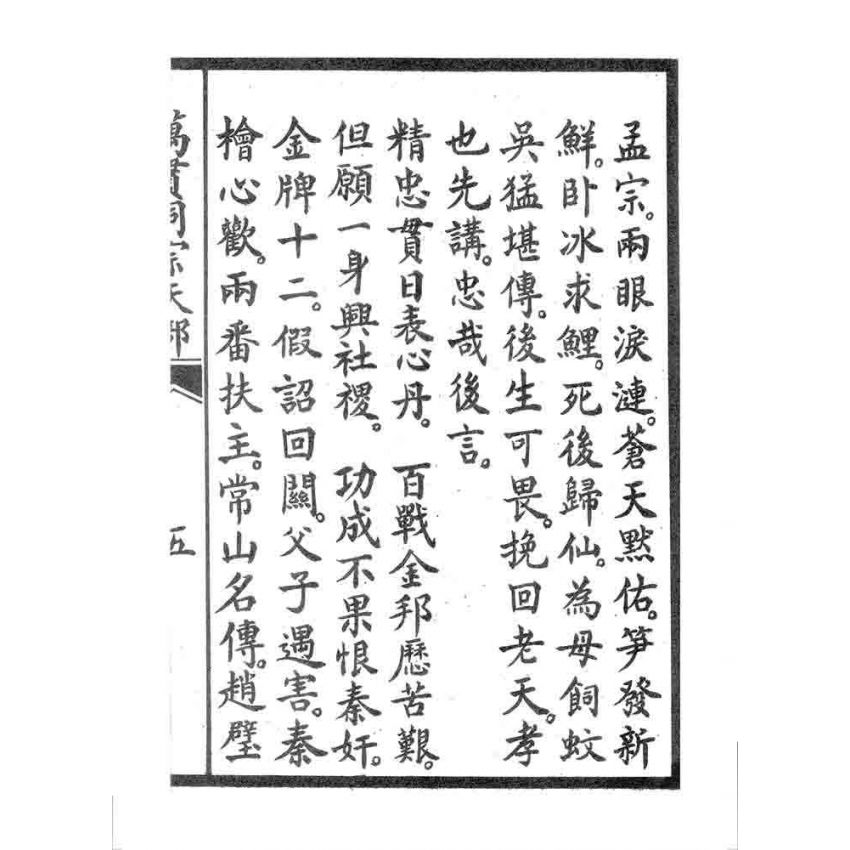 孟宗。兩眼淚漣。蒼天默佑。笋發新
鮮。卧冰求鯉。死後歸仙。為母飼蚊
吳猛堪傳。後生可畏。挽回老天。孝
也先講。忠哉後言。
精忠貫日表心丹。百戰金邦歷苦艱。
但願一身興社稷。功成不果恨秦奸。
金牌十二。假詔回關。父子遇害。秦
檜心歡。兩番扶主。常山名傳。趙璧
五